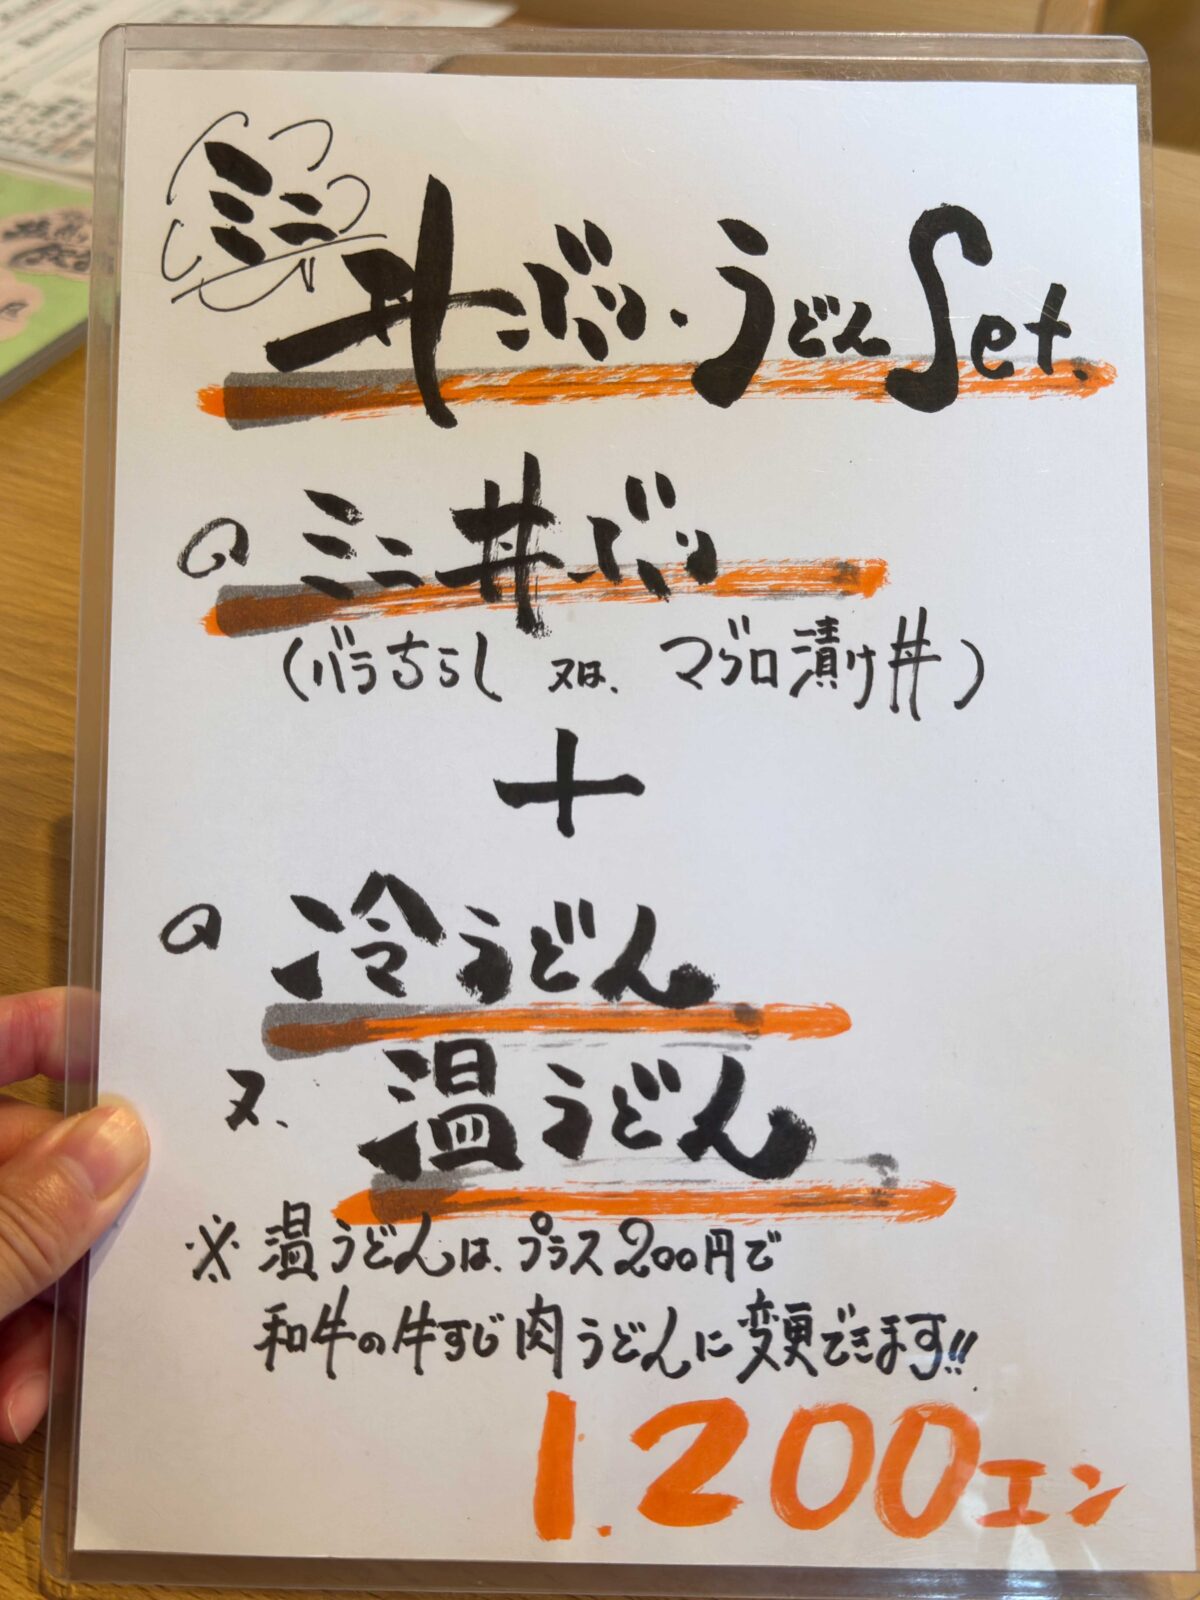 ミニ
丼ぶり・うどんSet.
ミニ丼ぶり
(バラちらし 又は、マグロ漬け丼)
+
冷うどん
又、温うどん
※温うどんは、プラス200円で
和牛の牛すじ肉うどんに変更できます!!
1.200エン